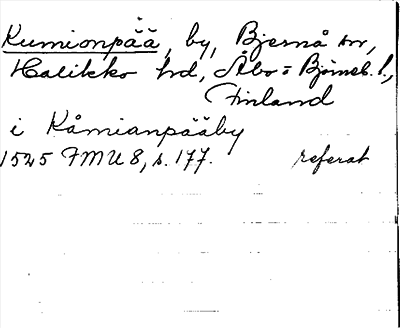 Kumionpää, by, Bjernå sn,
Halikko hd, Åbo-Björneb. l.,
Finland
i Kåmianpääby
1545 FMU 8, s. 177. referat